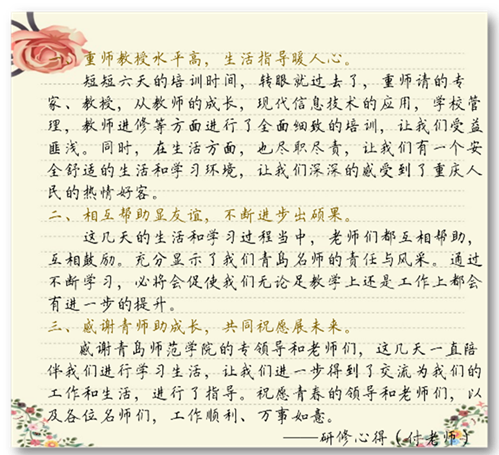 一、重师教授水平高，生活指导暖人心。
短短六天的培训时间，转眼就过去了，重师请的专
家、教授，从教师的成长，现代信息技术的应用，学校管
理，教师进修等方面进行了全面细致的培训，让我们受益
匪浅。同时，在生活方面，也尽职尽责，让我们有一个安
全舒适的生活和学习环境，让我们深深的感受到了重庆人
民的热情好客。
二、相互帮助显友谊，不断进步出硕果。
这几天的生活和学习过程当中，老师们都互相帮助，
互相鼓励。充分显示了我们青岛名师的责任与风采。通过
不断学习，必将会促使我们无论是教学上还是工作上都会
有进一步的提升。
三、感谢青师助成长，共同祝愿展未来。
感谢青岛师范学院的专领导和老师们，这几天一直陪
伴我们进行学习生活，让我们进一步得到了交流为我们的
工作和生活，进行了指导。祝愿青春的领导和老师们，以
及各位名师们，工作顺利、万事如意。
——研修心得（付老师）